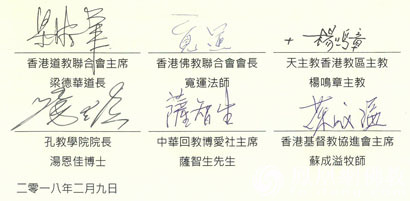 梁德華
寬運
+ 楊鳴章
香港道教聯合會主席
香港佛教聯合會會長
天主教香港教區主教
梁德華道長
寬運法師
楊鳴章主教
湯恩佳
薩智生
蘇成溢
孔教學院院長
中華回教博愛社主席
香港基督教協進會主席
湯恩佳博士
薩智生先生
蘇成溢牧師
二零一八年二月九日